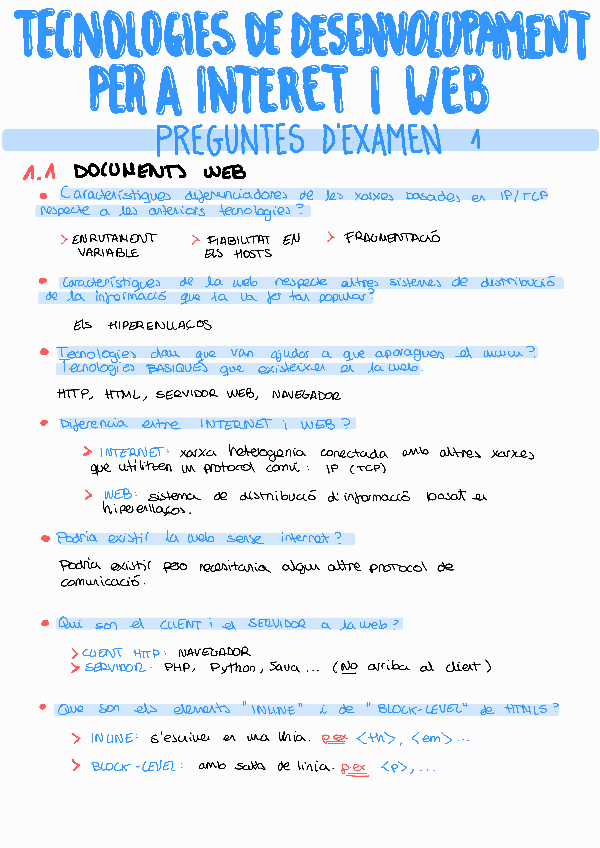 TECNOLOGIES DE DESENVOLUPAMENT
PER A INTERET I WEB
PREGUNTES D'EXAMEN 1
1.1 DOCUMENTS WEB
• Característiques diferenciadores de les xarxes basades en IP/TCP
respecte a les anteriors tecnologies?
> ENRUTAMENT > FIABILITAT EN > FRAGMENTACIÓ
VARIABLE ELS HOSTS
• Característiques de la web respecte altres sistemes de distribució
de la informació que la va fer tan popular?
ELS HIPERENLLAÇOS
• Tecnologies clau que van ajudar a que aparagues el www?
Tecnologies BÀSIQUES que existeixen en la web.
HTTP, HTML, SERVIDOR WEB, NAVEGADOR
• Diferencia entre INTERNET i WEB?
> INTERNET: xarxa heterogenia conectada amb altres xarxes
que utilitzen un protocol comú: IP (TCP)
> WEB: sistema de distribució d'informació basat en
hiperenllaços.
• Podria existir la web sense internet?
Podria existir pero necesitaria algun altre protocol de
comunicació.
• Qui son el CLIENT i el SERVIDOR a la web?
> CLIENT HTTP: NAVEGADOR
> SERVIDOR: PHP, Python, Java ... (NO arriba al client)
• Que son els elements "INLINE" i de "BLOCK-LEVEL" de HTML5?
> INLINE: s'escriuen en una línia. p.ex <th>, <em>...
> BLOCK-LEVEL: amb salts de línia. p.ex <p>,...